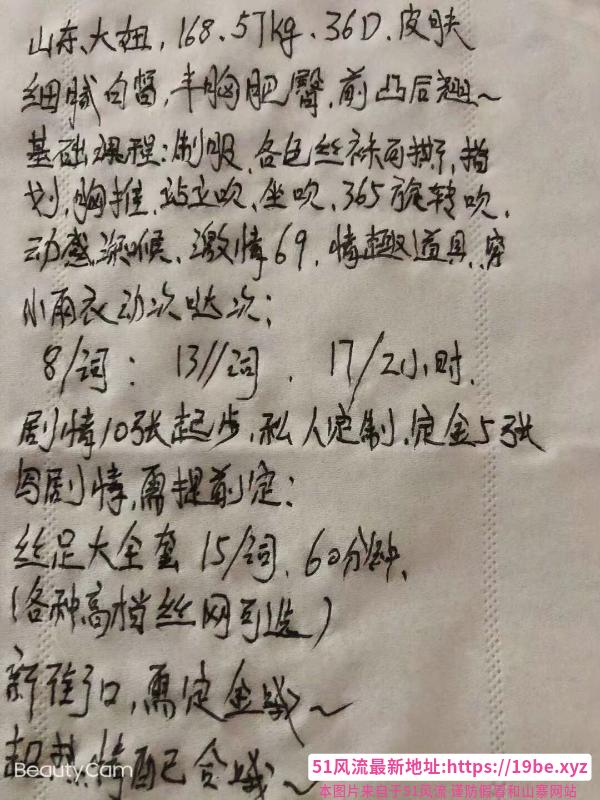 山东、大妞,168.57kg、36D.皮肤
细腻白皙,丰胸肥臀,前凸后翘~
基础课程:制服、各色丝袜可撕,指
划,胸推,站立吹、坐吹、365旋转吹、
动感深喉、激情69,情趣道具,穿
小雨衣动次哒次;
8/词: 13//词、17/2小时.
剧情10张起步,私人定制.定金5张
写剧情,需提前定:
丝足大全套 15/词、60分钟、
(各种高档丝网可选)
新街口,需定金哦~
配合哦~
BeautyCam
51风流最新地址:https://19be.xyz
本图片来自于51风流 谨防假冒和山寨网站